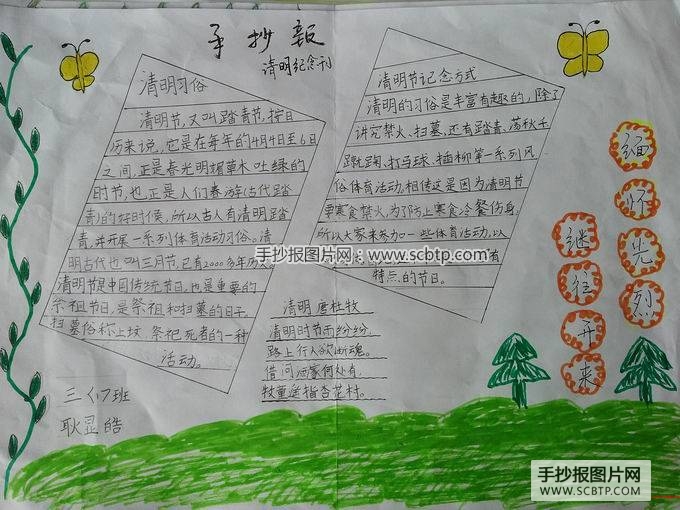 手抄报
清明纪念刊
清明习俗
清明节,又叫踏青节,按日
历来说,它是在每年的4月4日至6日
之间,正是春光明媚草木吐绿的
时节,也正是人们春游(古代踏
青)的好时候,所以古人有清明踏
青,并开展一系列体育活动习俗。清
明古代也叫三月节,已有2000多年历
清明节是中国传统节日,也是重要的
祭祖节日,是祭祖和扫墓的日子。
扫墓俗称上坟,祭祀死者的一种
活动。
清明节记念方式
清明的习俗是丰富有趣的,除了
讲究禁火、扫墓,还有踏青、荡秋千
蹴踘、打马球、插柳第一系列风
俗体育活动。相传这是因为清明节
要寒食禁火,为了防止寒食冷餐伤身,
所以大家来参加一些体育活动,以
有
特点的节日。
清明 唐杜牧
清明时节雨纷纷
路上行人欲断魂。
借问酒家何处有
牧童遥指杏花村。
缅怀光烈
继往开来
三(7)班
耿显皓
手抄报图片网
www.scbtp.com
手抄报图片网
WWW.SCBTP.COM